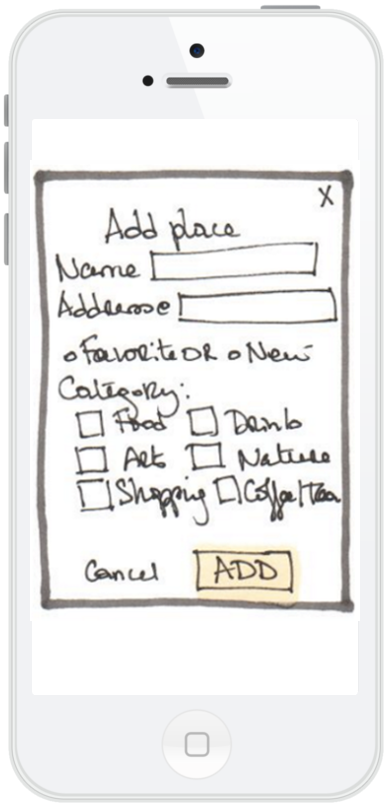 X
Add place
Name
Address
o Favorite OR o New
Category:
Food Drink
Art Nature
Shopping Coffee/Tea
Cancel ADD